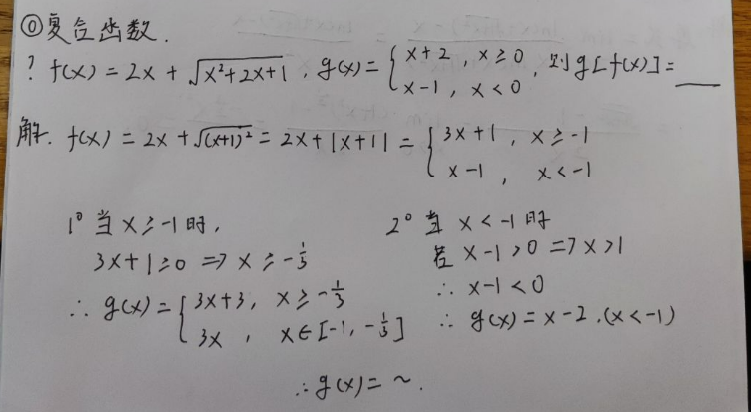 ⓪复合函数.
? f(x) = 2x + √(x²+2x+1) , g(x) = { x+2 , x≥0 ; x-1 , x<0 , 则g[f(x)] = ___
解. f(x) = 2x + √(x+1)² = 2x + |x+1| = { 3x+1 , x≥-1 ; x-1 , x<-1
1° 当x≥-1时,
3x+1≥0 ⇒ x≥-1/3
∴ g(x) = { 3x+3, x≥-1/3 ; 3x , x∈[-1, -1/3]
2° 当 x<-1时
若 x-1>0 ⇒ x>1
∴ x-1<0
∴ g(x) = x-2 .(x<-1)
∴ g(x) = ~ .